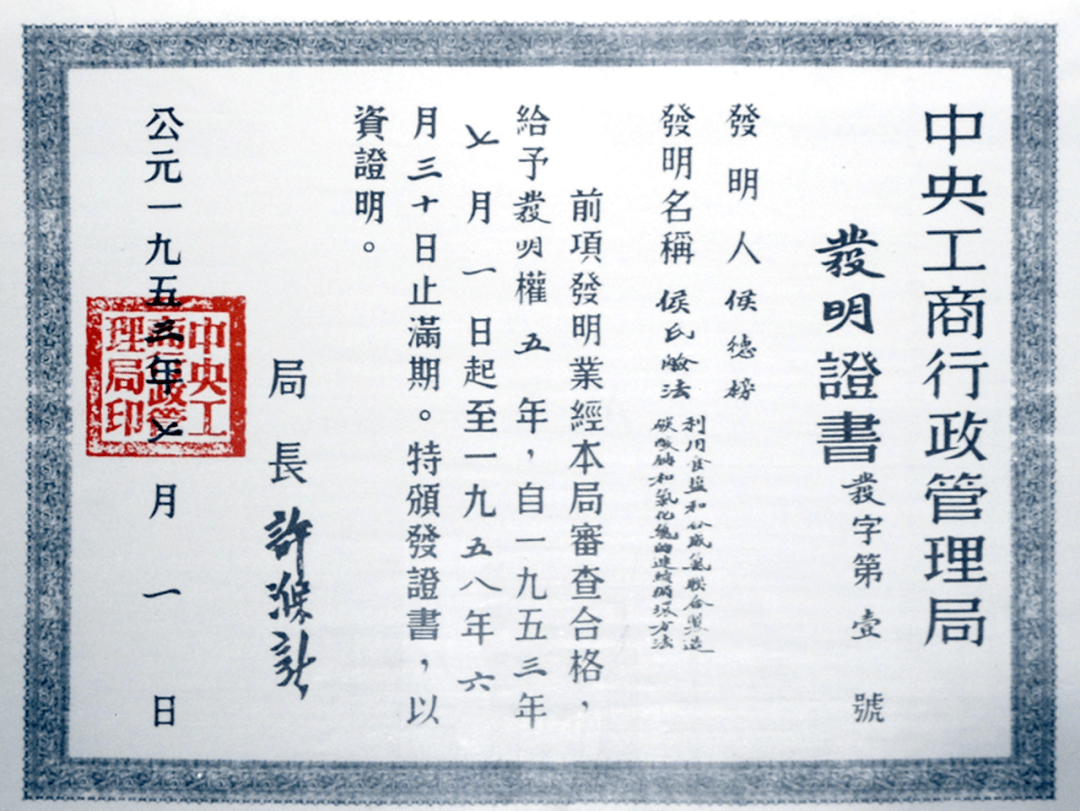 中央工商行政管理局
發明證書
發字第壹號
發明人侯德榜
發明名稱侯氏鹼法
利用食盐和合成氨联合製造
碳酸鈉和氯化銨的連續循環方法
前項發明業經本局審查合格，
給予發明權五年，自一九五三年
七月一日起至一九五八年六
月三十日止滿期。特頒發證書，以
資證明。
局長許滌新
公元一九五三年七月一日
中央工
商行政管
理局印